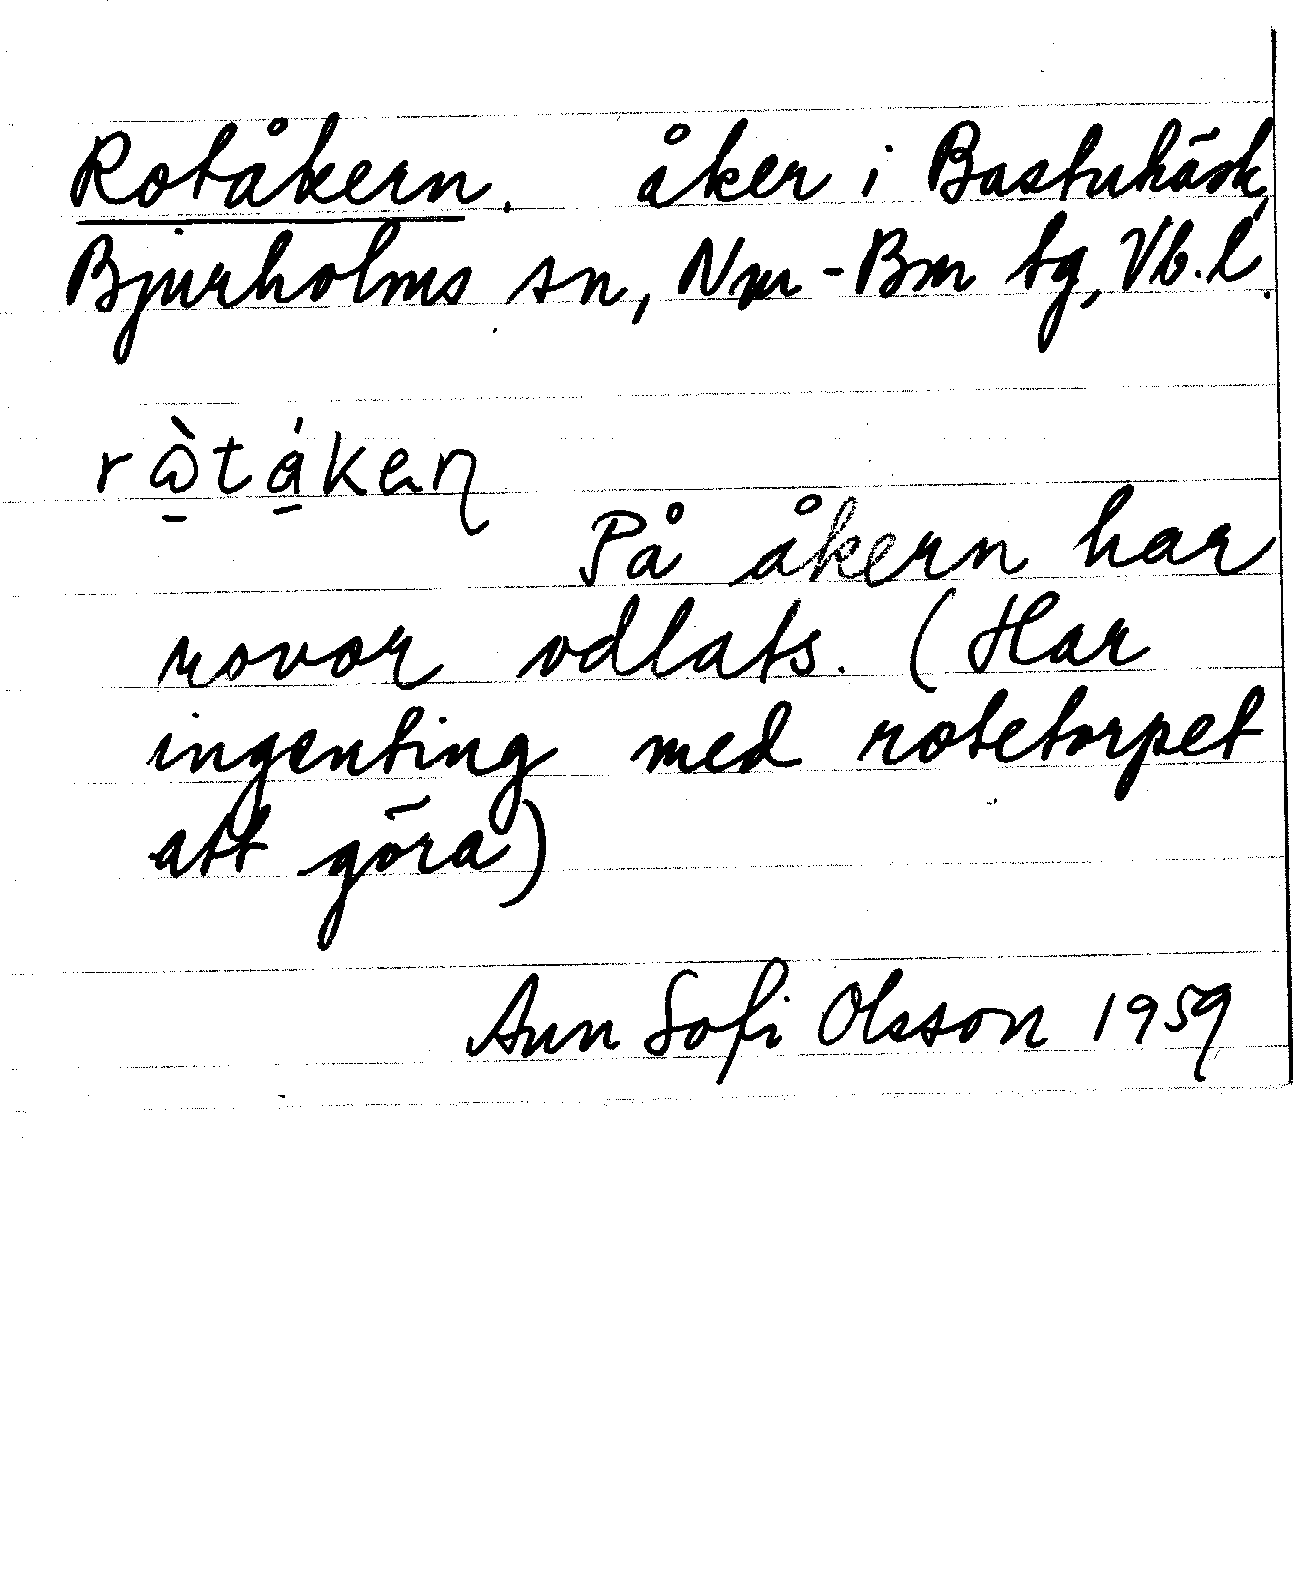 Rotåkern. åker i Bastubäck,
Bjurholms sn, Nm-Bm tg, Vb.l.
På åkern har
rovor odlats. (Har
ingenting med rotetorpet
att göra)
Ann Sofi Olsson 1959